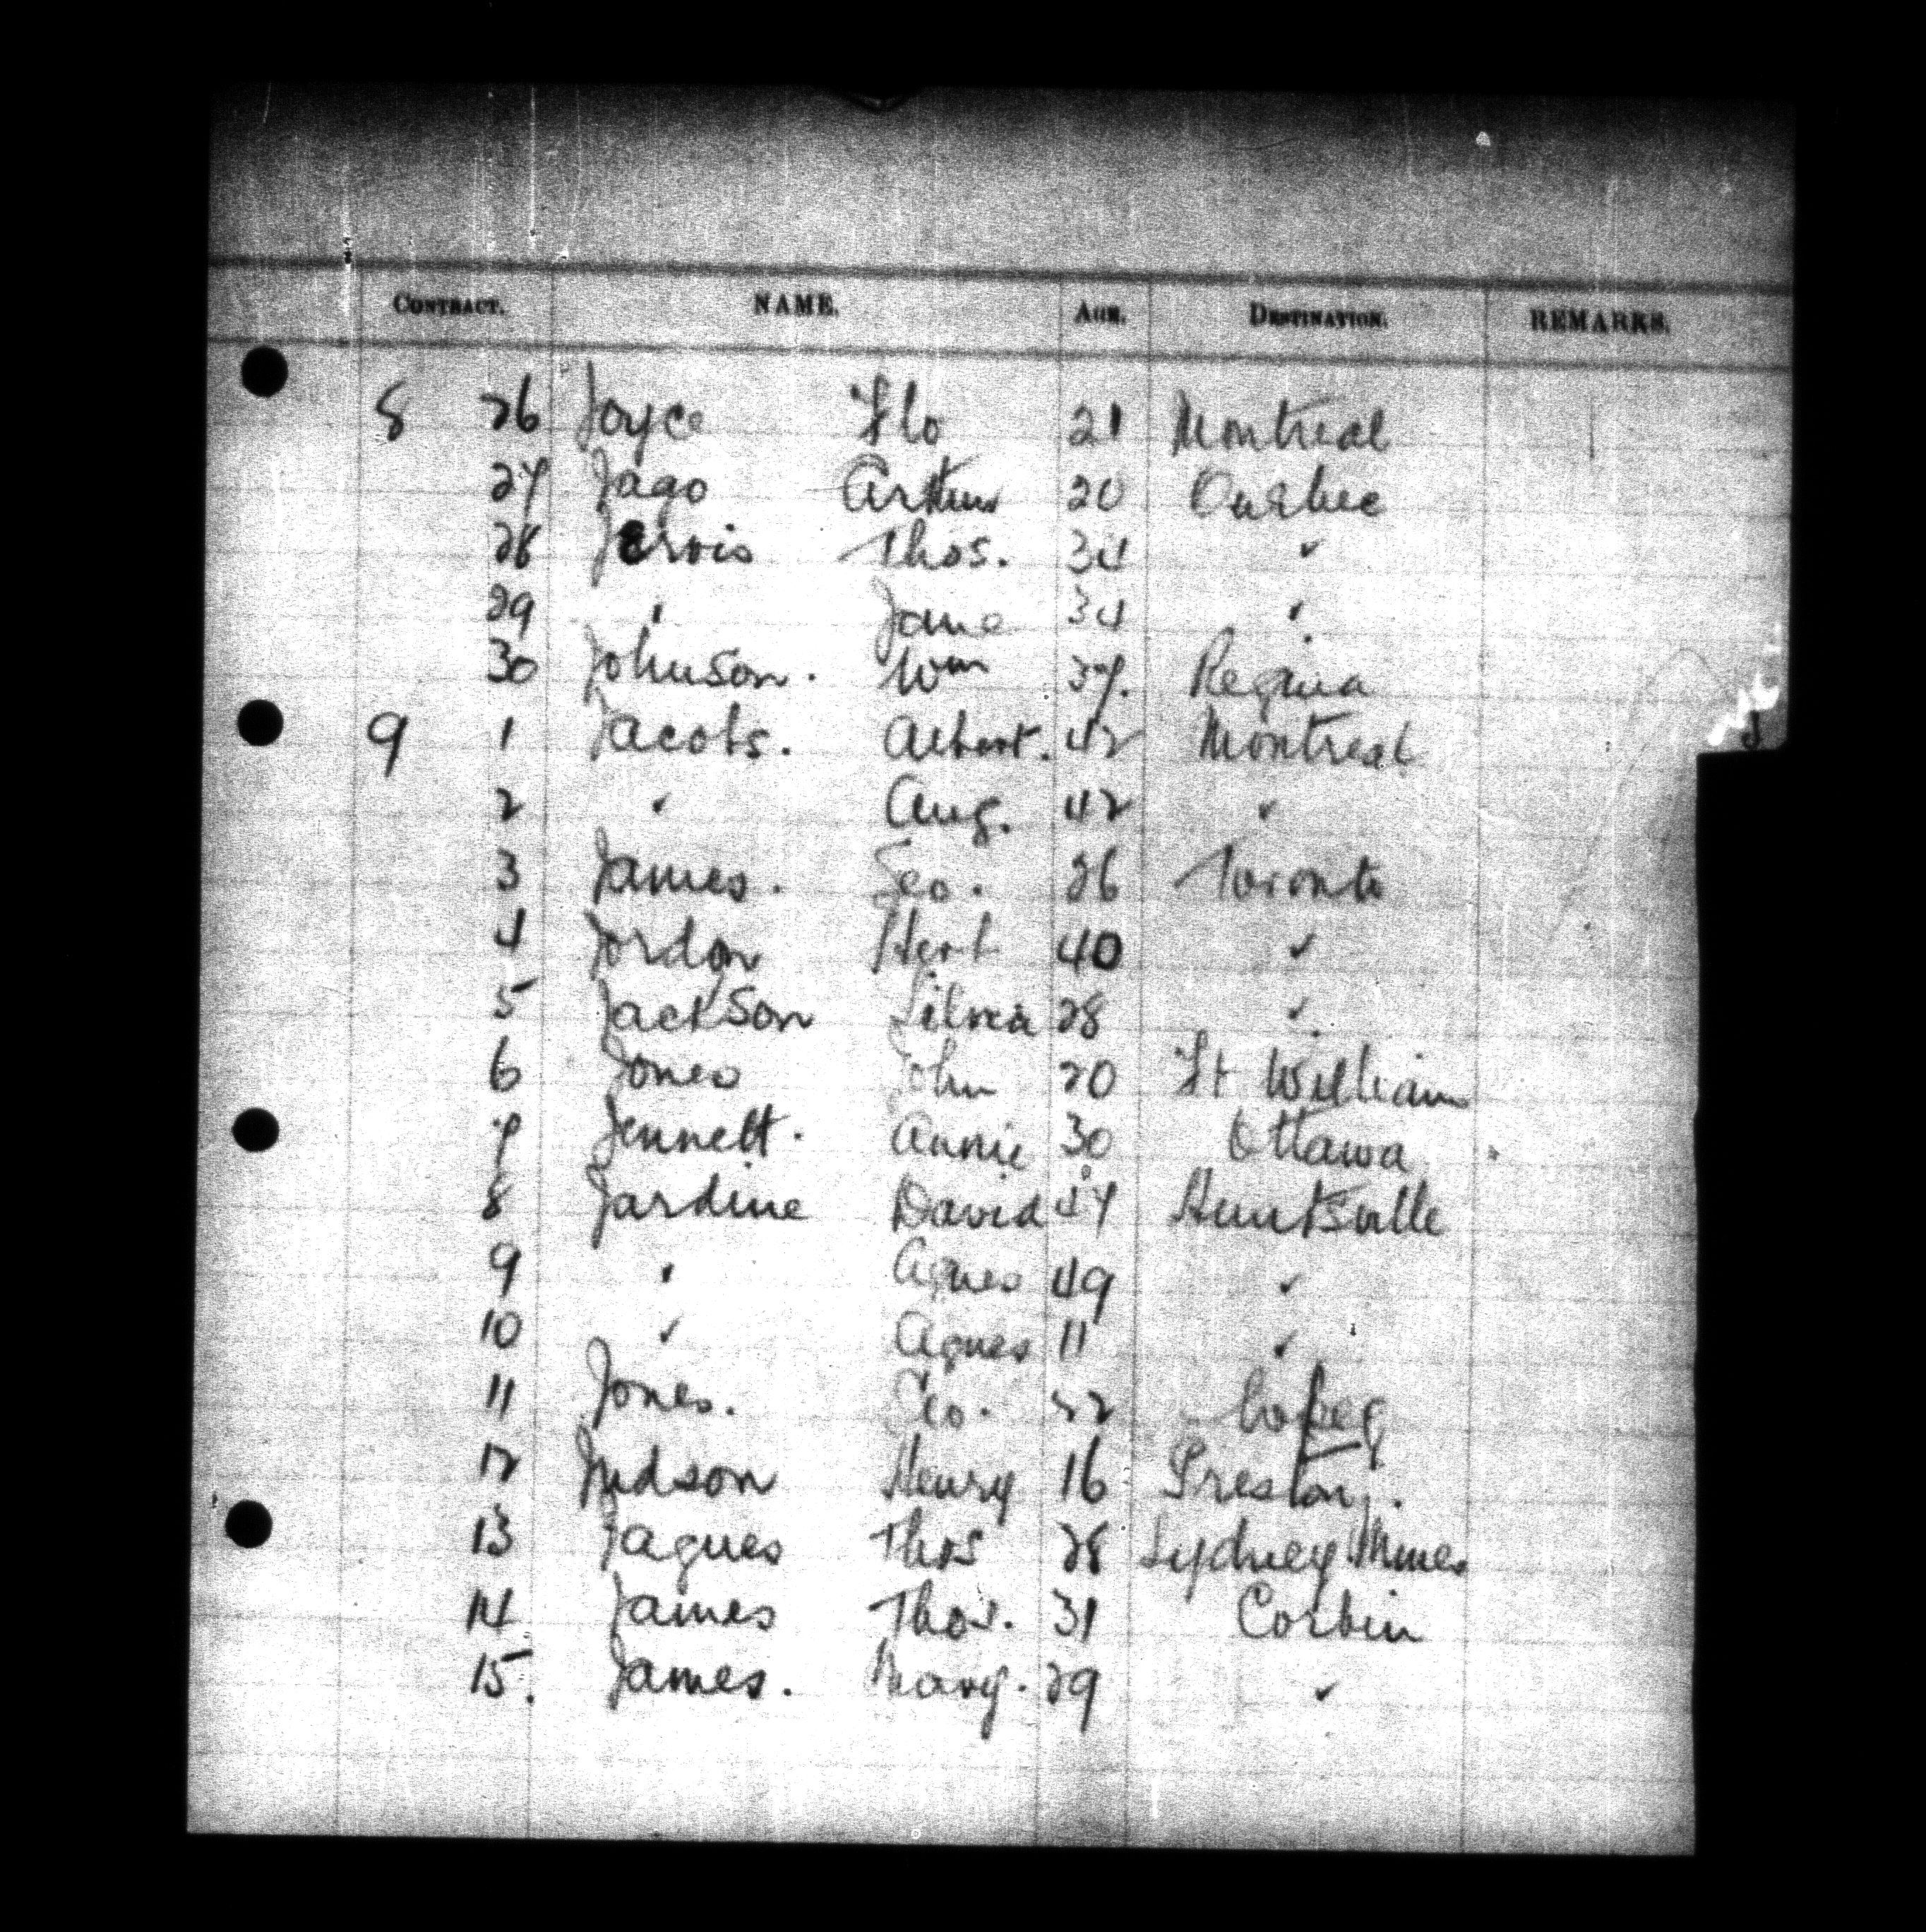 CONTRACT. NAME. AGE. DESTINATION. REMARKS.
8 26 Joyce Flo 21 Montreal
27 Jago Arthur 20 Quebec
28 Jervis Thos. 34 "
29 " Jane 34 "
30 Johnson. Wm 37. Regina
9 1 Jacobs. Albert. 42 Montreal
J
2 " Aug. 42 "
3 James. Geo. 26 Toronto
4 Jordon Herb 40 "
5 Jackson 28 "
6 Jones John 20 Ft William
7 Jennett. Annie 30 Ottawa
8 Jardine David 47 Huntsville
9 " Agnes 49 "
10 " Agnes 11 "
11 Jones. Geo.
12 Judson Henry 16 Preston.
13 Jagues Thos 28 Sydney Mines
14 James Thos. 31 Corbin
15. James. Mary. 29 "